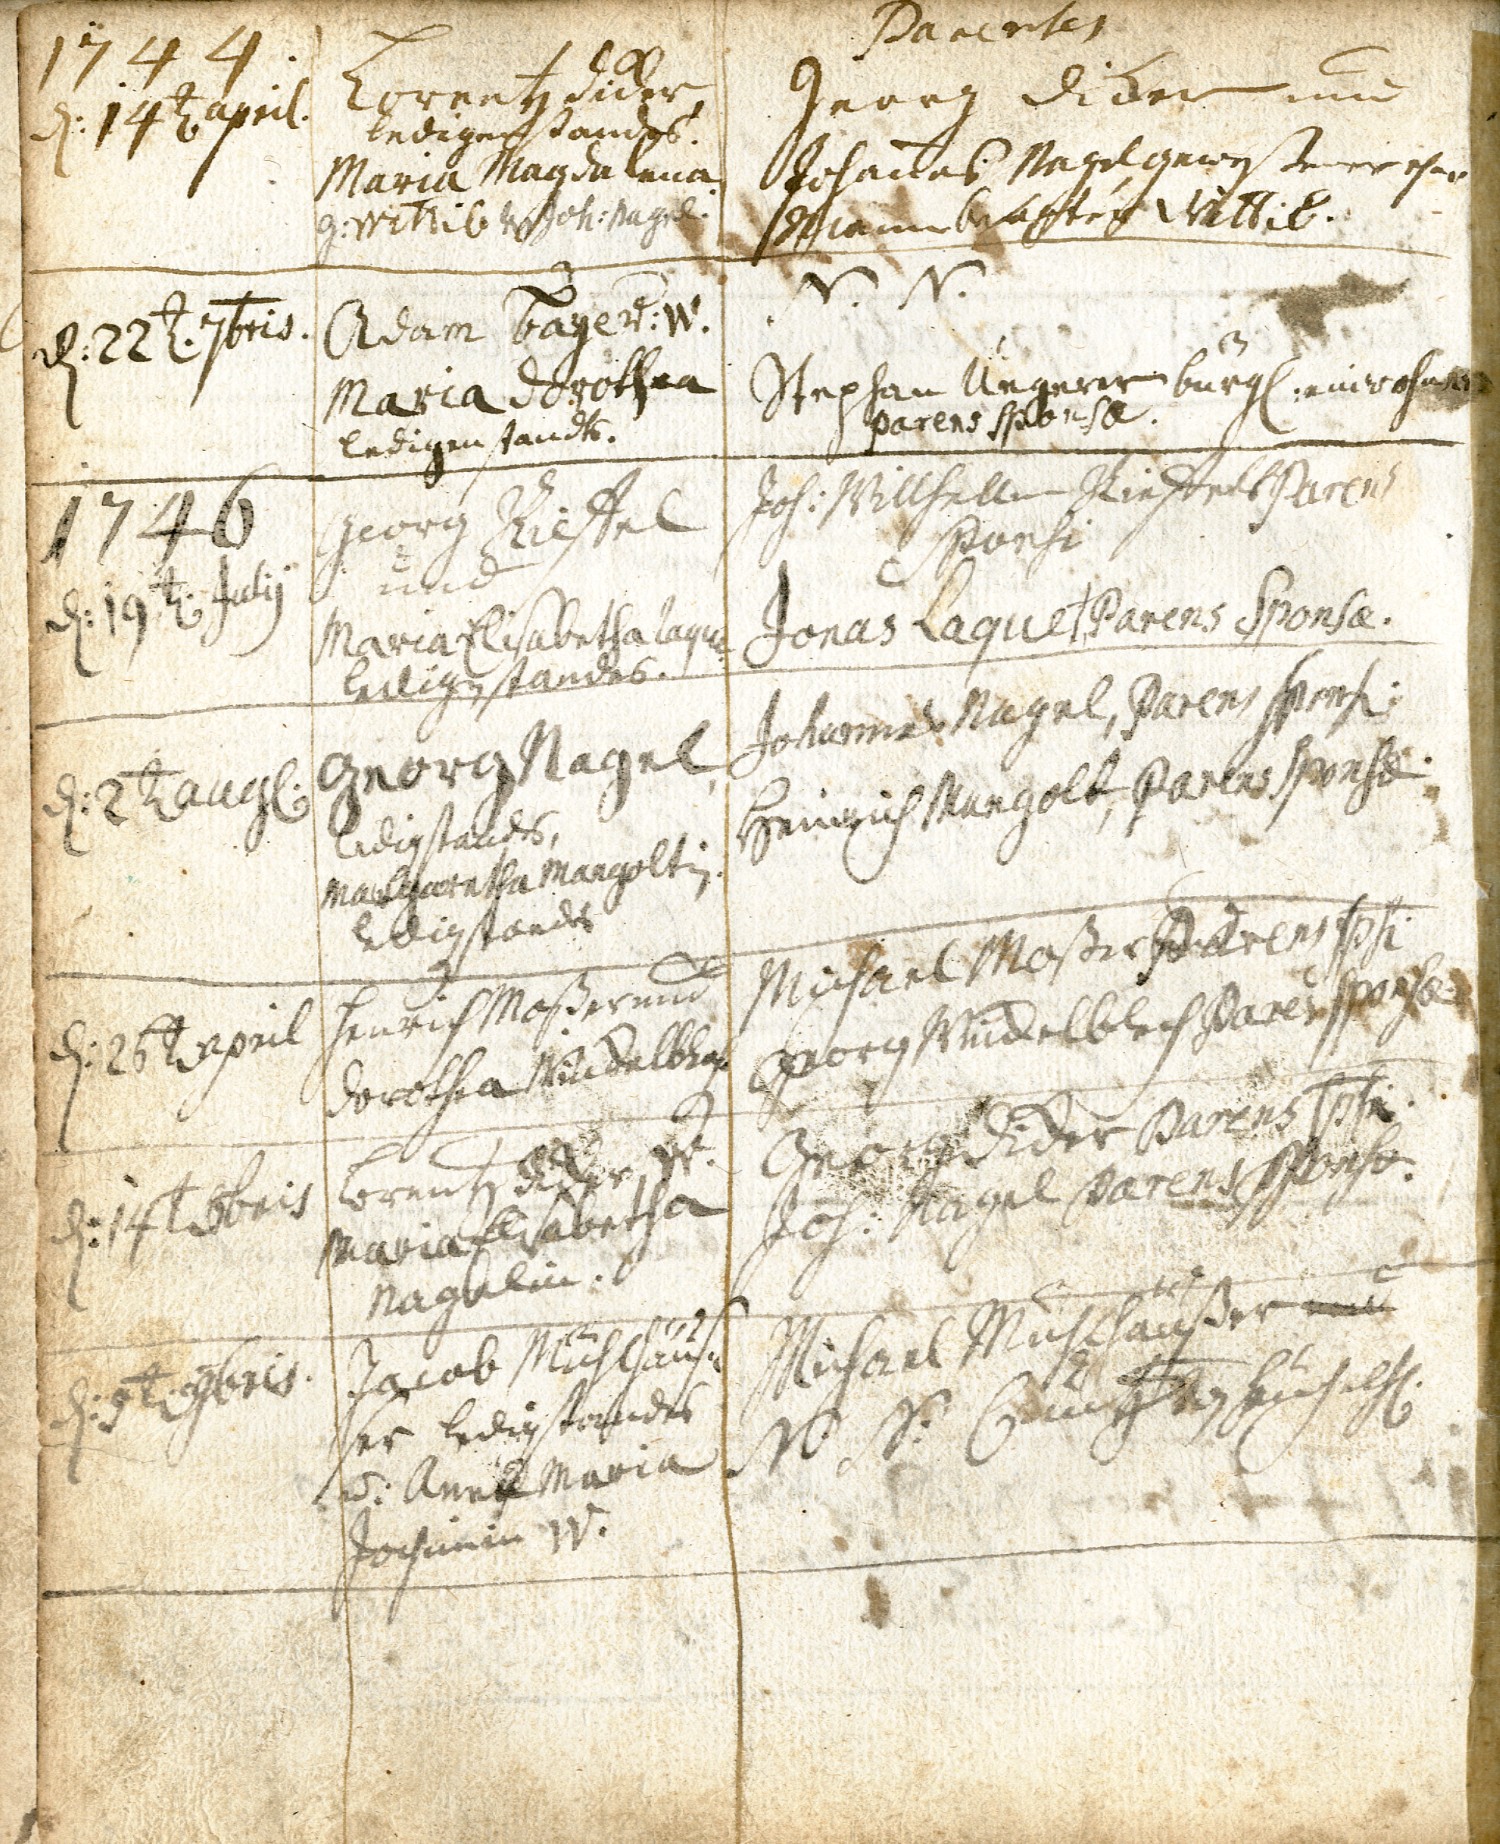 Parentes
1744.
d: 14t april.
Lorentz Dider,
ledigen standes.
Maria Magdalena
g: Wittib v Joh: Nagel.
Georg Dider und
Johannes Nagel, gewester
Wittib.
d: 22t. 7bris.
Adam Bager: W.
Maria Dorothea
ledigen standts.
N. N.
Stephan Ungerer burgl: einwohner
parens sponsæ.
1746
d: 19t. Julij
Georg Rieffel
und
Maria Elisabetha Laque
ledig standes.
Joh: Willhelm Rieffel Parens
Sponsi
Jonas Laquet Parens Sponsæ.
d: 2t augl:
Georg Nagel,
ledig standes,
Margaretha Mangoltin.
ledig standes
Johannes Nagel, Parens sponsi:
Heinrich Mangolt, Parens Sponsæ.
d: 26t april
Henrich Moßer und
Dorothea Windelblech
Michael Moßer Parens spsi
Georg Windelblech Parens sponsæ.
d: 14t 8bris
Lorentz Dider, W.
Maria Elisabetha
Nagelin.
Georg Dider Parens spsi.
Joh: Nagel parens sponsæ.
d: 9bris.
Jacob Mühlhäuß
ser ledig standes
v: Anna Maria
W.
Michael Mühlhäußer und
N. N.